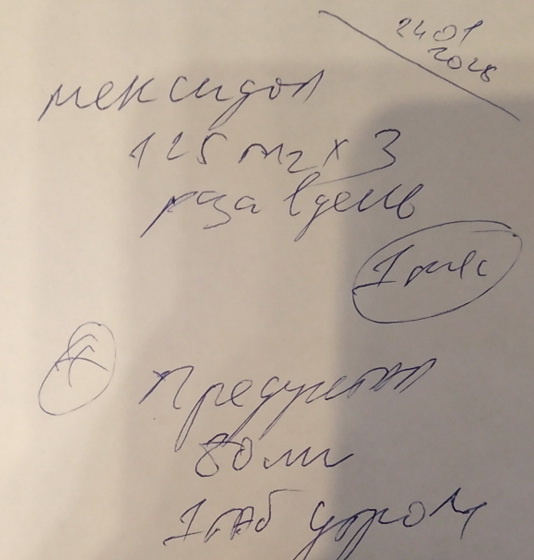 24 01
2026
мексидол
125 мг х 3
раза в день
1 мес
Предуктал
80 мг
1 таб утром